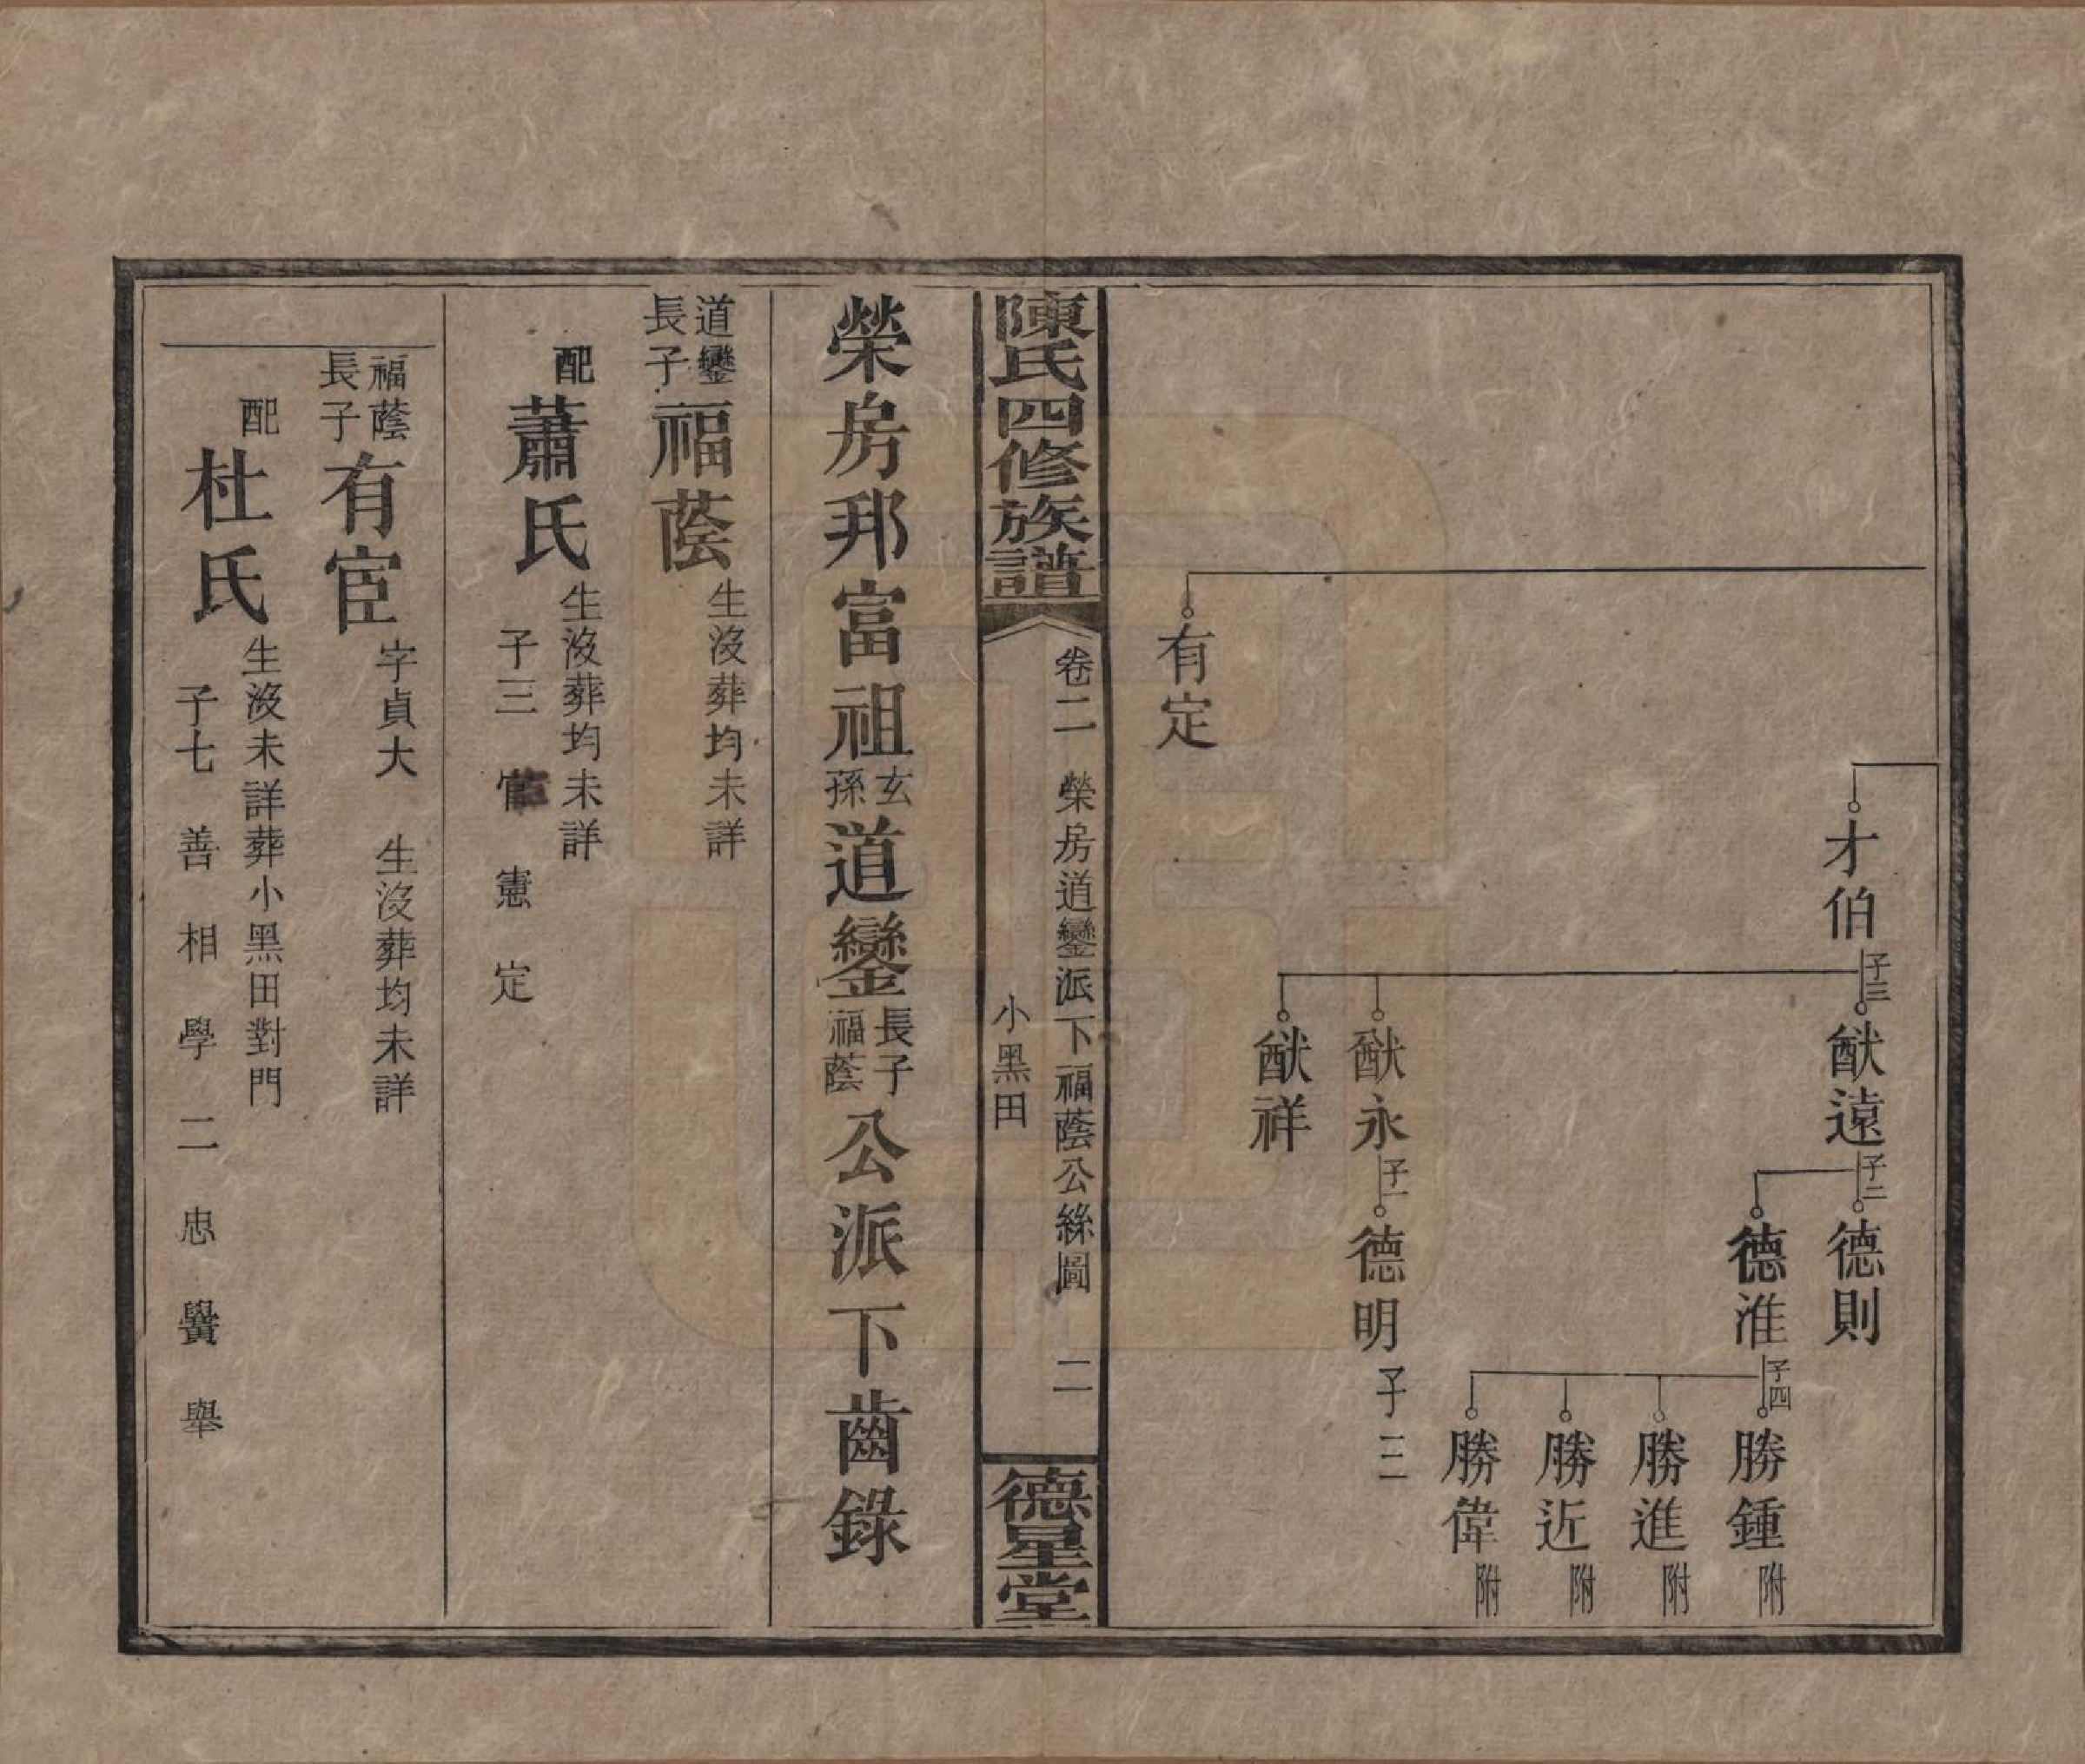 才伯
子三
猷遠
子二
德則
德淮
子四
勝鍾 附
勝進 附
勝近 附
勝偉 附
猷永
子一
德明 子二
猷祥
有定
陳氏四修族譜
卷二 榮房道鑾派下福蔭公絲圖 二
小黑田
德星堂
榮房邦富祖玄孫道鑾長子福蔭公派下齒錄
道鑾長子福蔭 生沒葬均未詳
配蕭氏 生沒葬均未詳
子三 憲 定
福蔭長子有宦 字貞大 生沒葬均未詳
配杜氏 生沒未詳葬小黑田對門
子七 善 相 學 二 忠 黌 舉